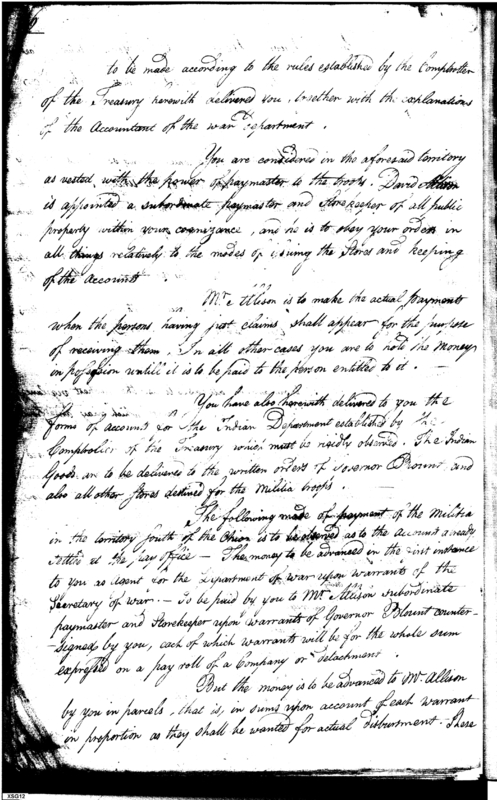 to be made according to the rules established by the Comptroller
of the Treasury herewith delivered you, together with the explanations
of the Accountant of the war Department.
You are considered in the aforesaid territory
as vested with the power of paymaster to the troops. David Allison
is appointed a subordinate paymaster and storekeeper of all public
property within your cognizance, and he is to obey your orders in
all things relatively to the modes of issuing the Stores and keeping
of the Accounts
Mr. Allison is to make the actual payments
when the persons having just claims shall appear for the purpose
of receiving them. In all other cases you are to hold the money
in possession untill it is to be paid to the person entitled to it. —
You have also herewith delivered to you the
forms of account for the Indian Department established by the
Comptroller of the Treasury which must be rigidly observed. The Indian
Goods are to be delivered to the written orders of Governor Blount and
also all other Stores destined for the Militia troops.
The following mode of payment of the Militia
in the territory South of the Ohio is to be observed as to the Accounts already
settled at the pay office — The money to be advanced in the first instance
to you as Agent for the Department of war upon warrants of the
Secretary of war. — To be paid by you to Mr. Allison subordinate
paymaster and Storekeeper upon warrants of Governor Blount counter-
-signed by you, each of which warrants will be for the whole sum
expressed on a pay roll of a Company or detachment.
But the money is to be advanced to Mr. Allison
by you in parcels, that is, in sums upon account of each warrant
in proportion as they shall be wanted for actual disbursment. These
XSG12